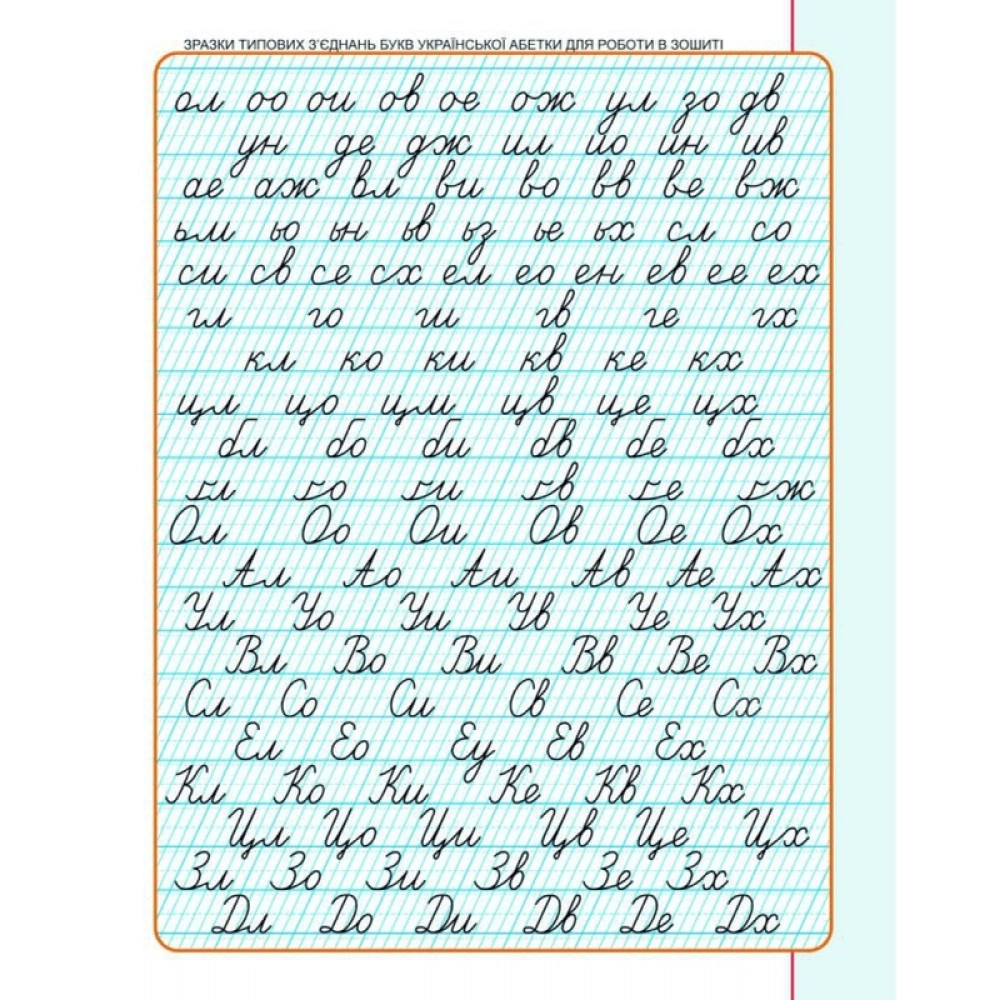 ЗРАЗКИ ТИПОВИХ З'ЄДНАНЬ БУКВ УКРАЇНСЬКОЇ АБЕТКИ ДЛЯ РОБОТИ В ЗОШИТІ
ол оо ои ов ое ож ул зо дв
ун де дж ил йо ин ив
ае аж вл ви во вв ве вж
ьм ьо ьн ьв ьз ье ьх сл со
си св се сх ел ео ен ев ее ех
гл го ги гв ге гх
кл ко ки кв ке кх
цл цо цм цв це цх
бл бо би бв бе бх
ґл ґо ґи ґв ґе ґж
Ол Оо Ои Ов Ое Ох
Ал Ао Аи Ав Ае Ах
Ул Уо Уи Ув Уе Ух
Вл Во Ви Вв Ве Вх
Сл Со Си Св Се Сх
Ел Ео Еу Ев Ех
Кл Ко Ки Ке Кв Кх
Цл Цо Ци Цв Це Цх
Зл Зо Зи Зв Зе Зх
Дл До Ди Дв Де Дх